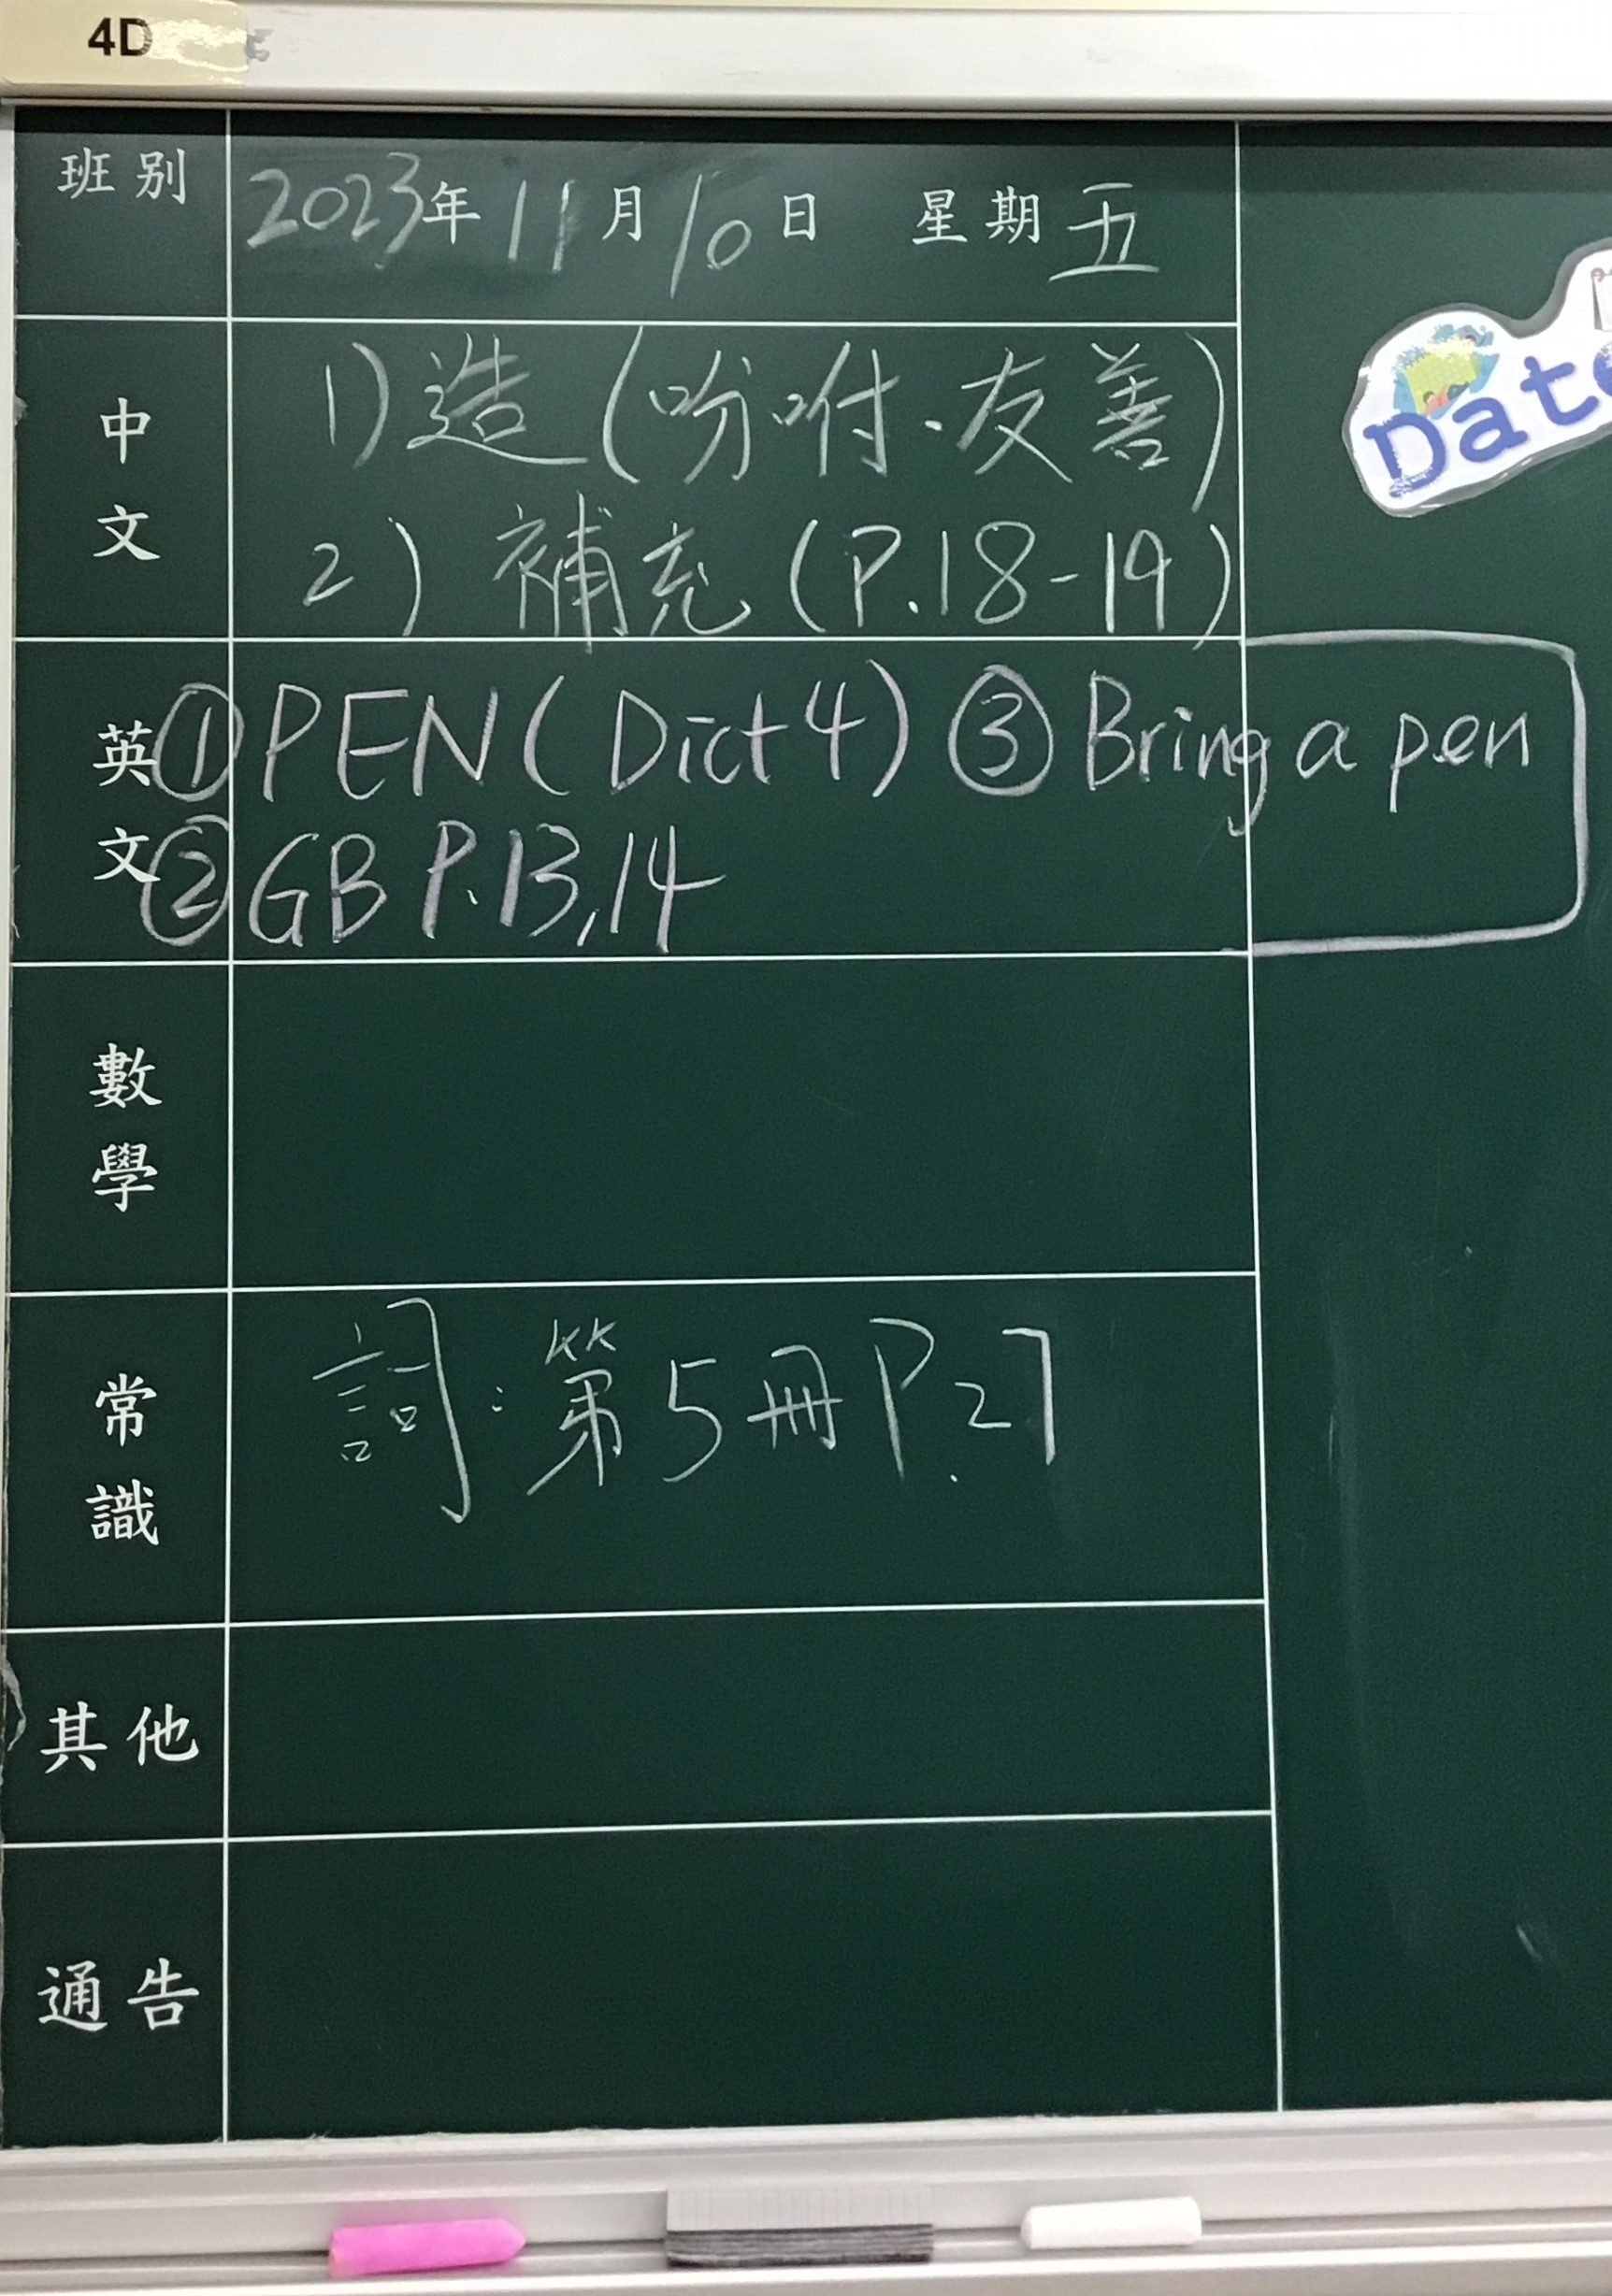 4D
班別 2023年11月10日 星期五
中文 1)造(吩咐.友善)
2)補充(P.18-19)
英文 ①PEN(Dict 4) ③Bring a pen
②GB P.13,14
數學
常識 詞:第5冊P.27
其他
通告
Date